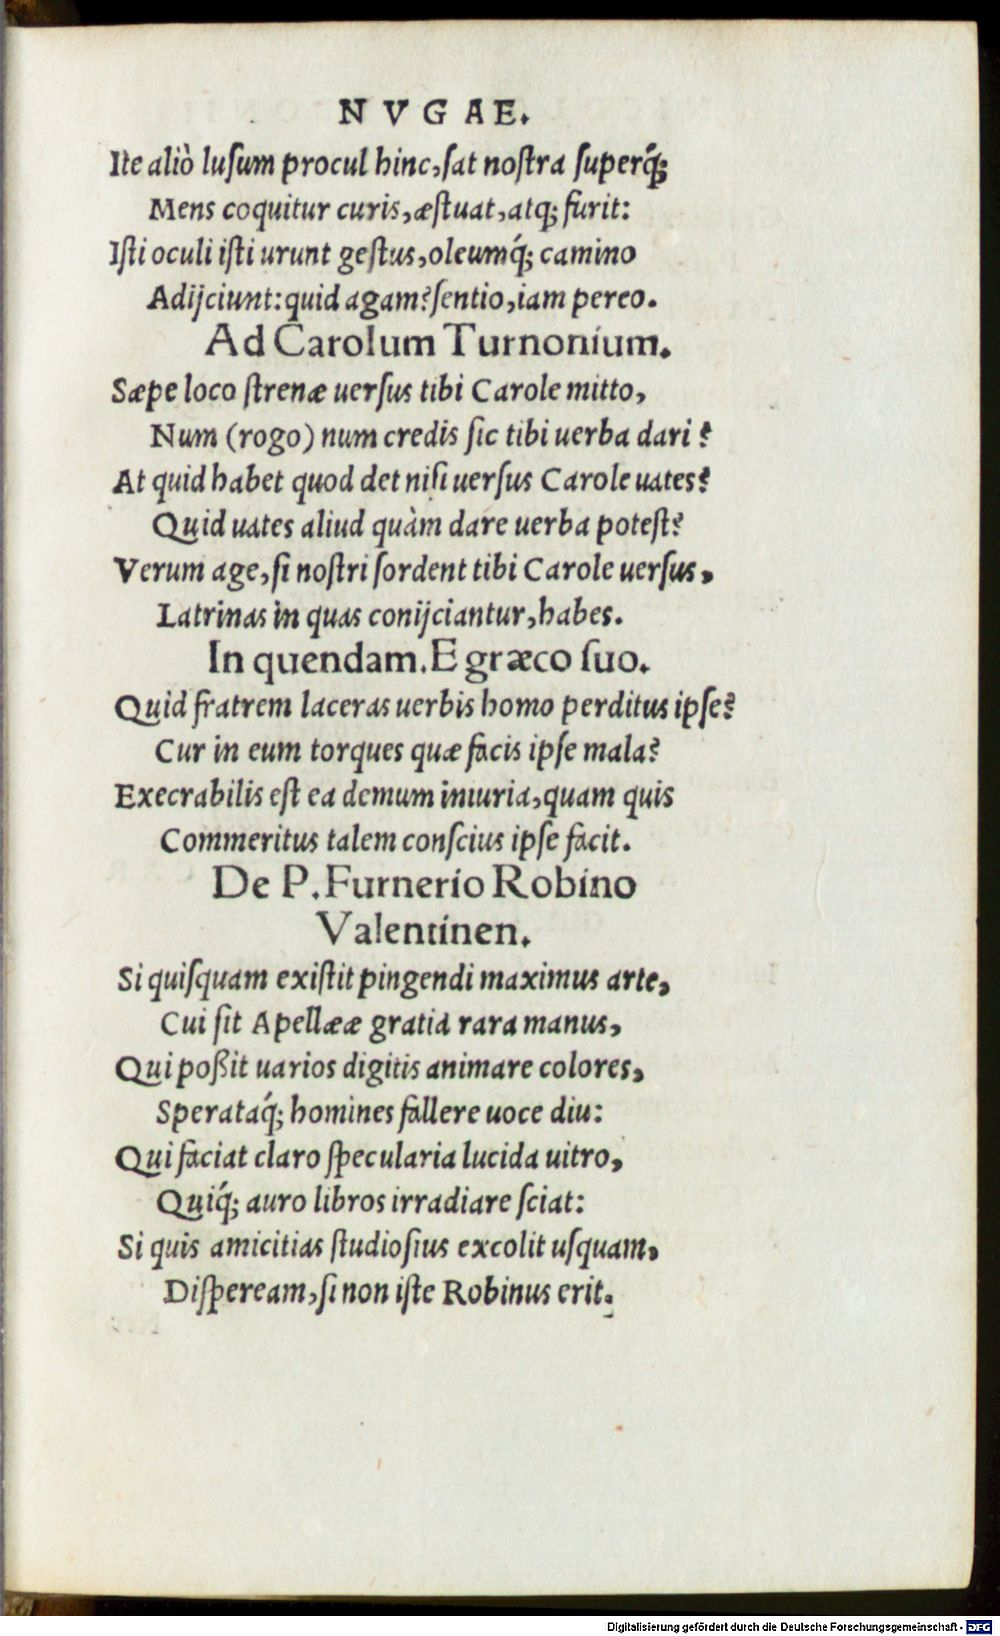 NVGAE.
Ite aliò luſum procul hinc, ſat noſtra ſuperq́;
Mens coquitur curis, æſtuat, atq; furit:
Iſti oculi iſti urunt geſtus, oleumq́; camino
Adijciunt: quid agam? ſentio, iam pereo.
Ad Carolum Turnonium.
Sæpe loco ſtrenæ uerſus tibi Carole mitto,
Num (rogo) num credis ſic tibi uerba dari?
At quid habet quod det niſi uerſus Carole uates?
Quid uates aliud quàm dare uerba poteſt?
Verum age, ſi noſtri ſordent tibi Carole uerſus,
Latrinas in quas conijciantur, habes.
In quendam. E græco ſuo.
Quid fratrem laceras uerbis homo perditus ipſe?
Cur in eum torques quæ facis ipſe mala?
Execrabilis eſt ea demum iniuria, quam quis
Commeritus talem conſcius ipſe facit.
De P. Furnerio Robino
Valentinen.
Si quiſquam exiſtit pingendi maximus arte,
Cui ſit Apellææ gratia rara manus,
Qui poßit uarios digitis animare colores,
Sperataq́; homines fallere uoce diu:
Qui faciat claro ſpecularia lucida uitro,
Quiq́; auro libros irradiare ſciat:
Si quis amicitias ſtudioſius excolit uſquam,
Diſpeream, ſi non iſte Robinus erit.
Digitalisierung gefördert durch die Deutsche Forschungsgemeinschaft - DFG